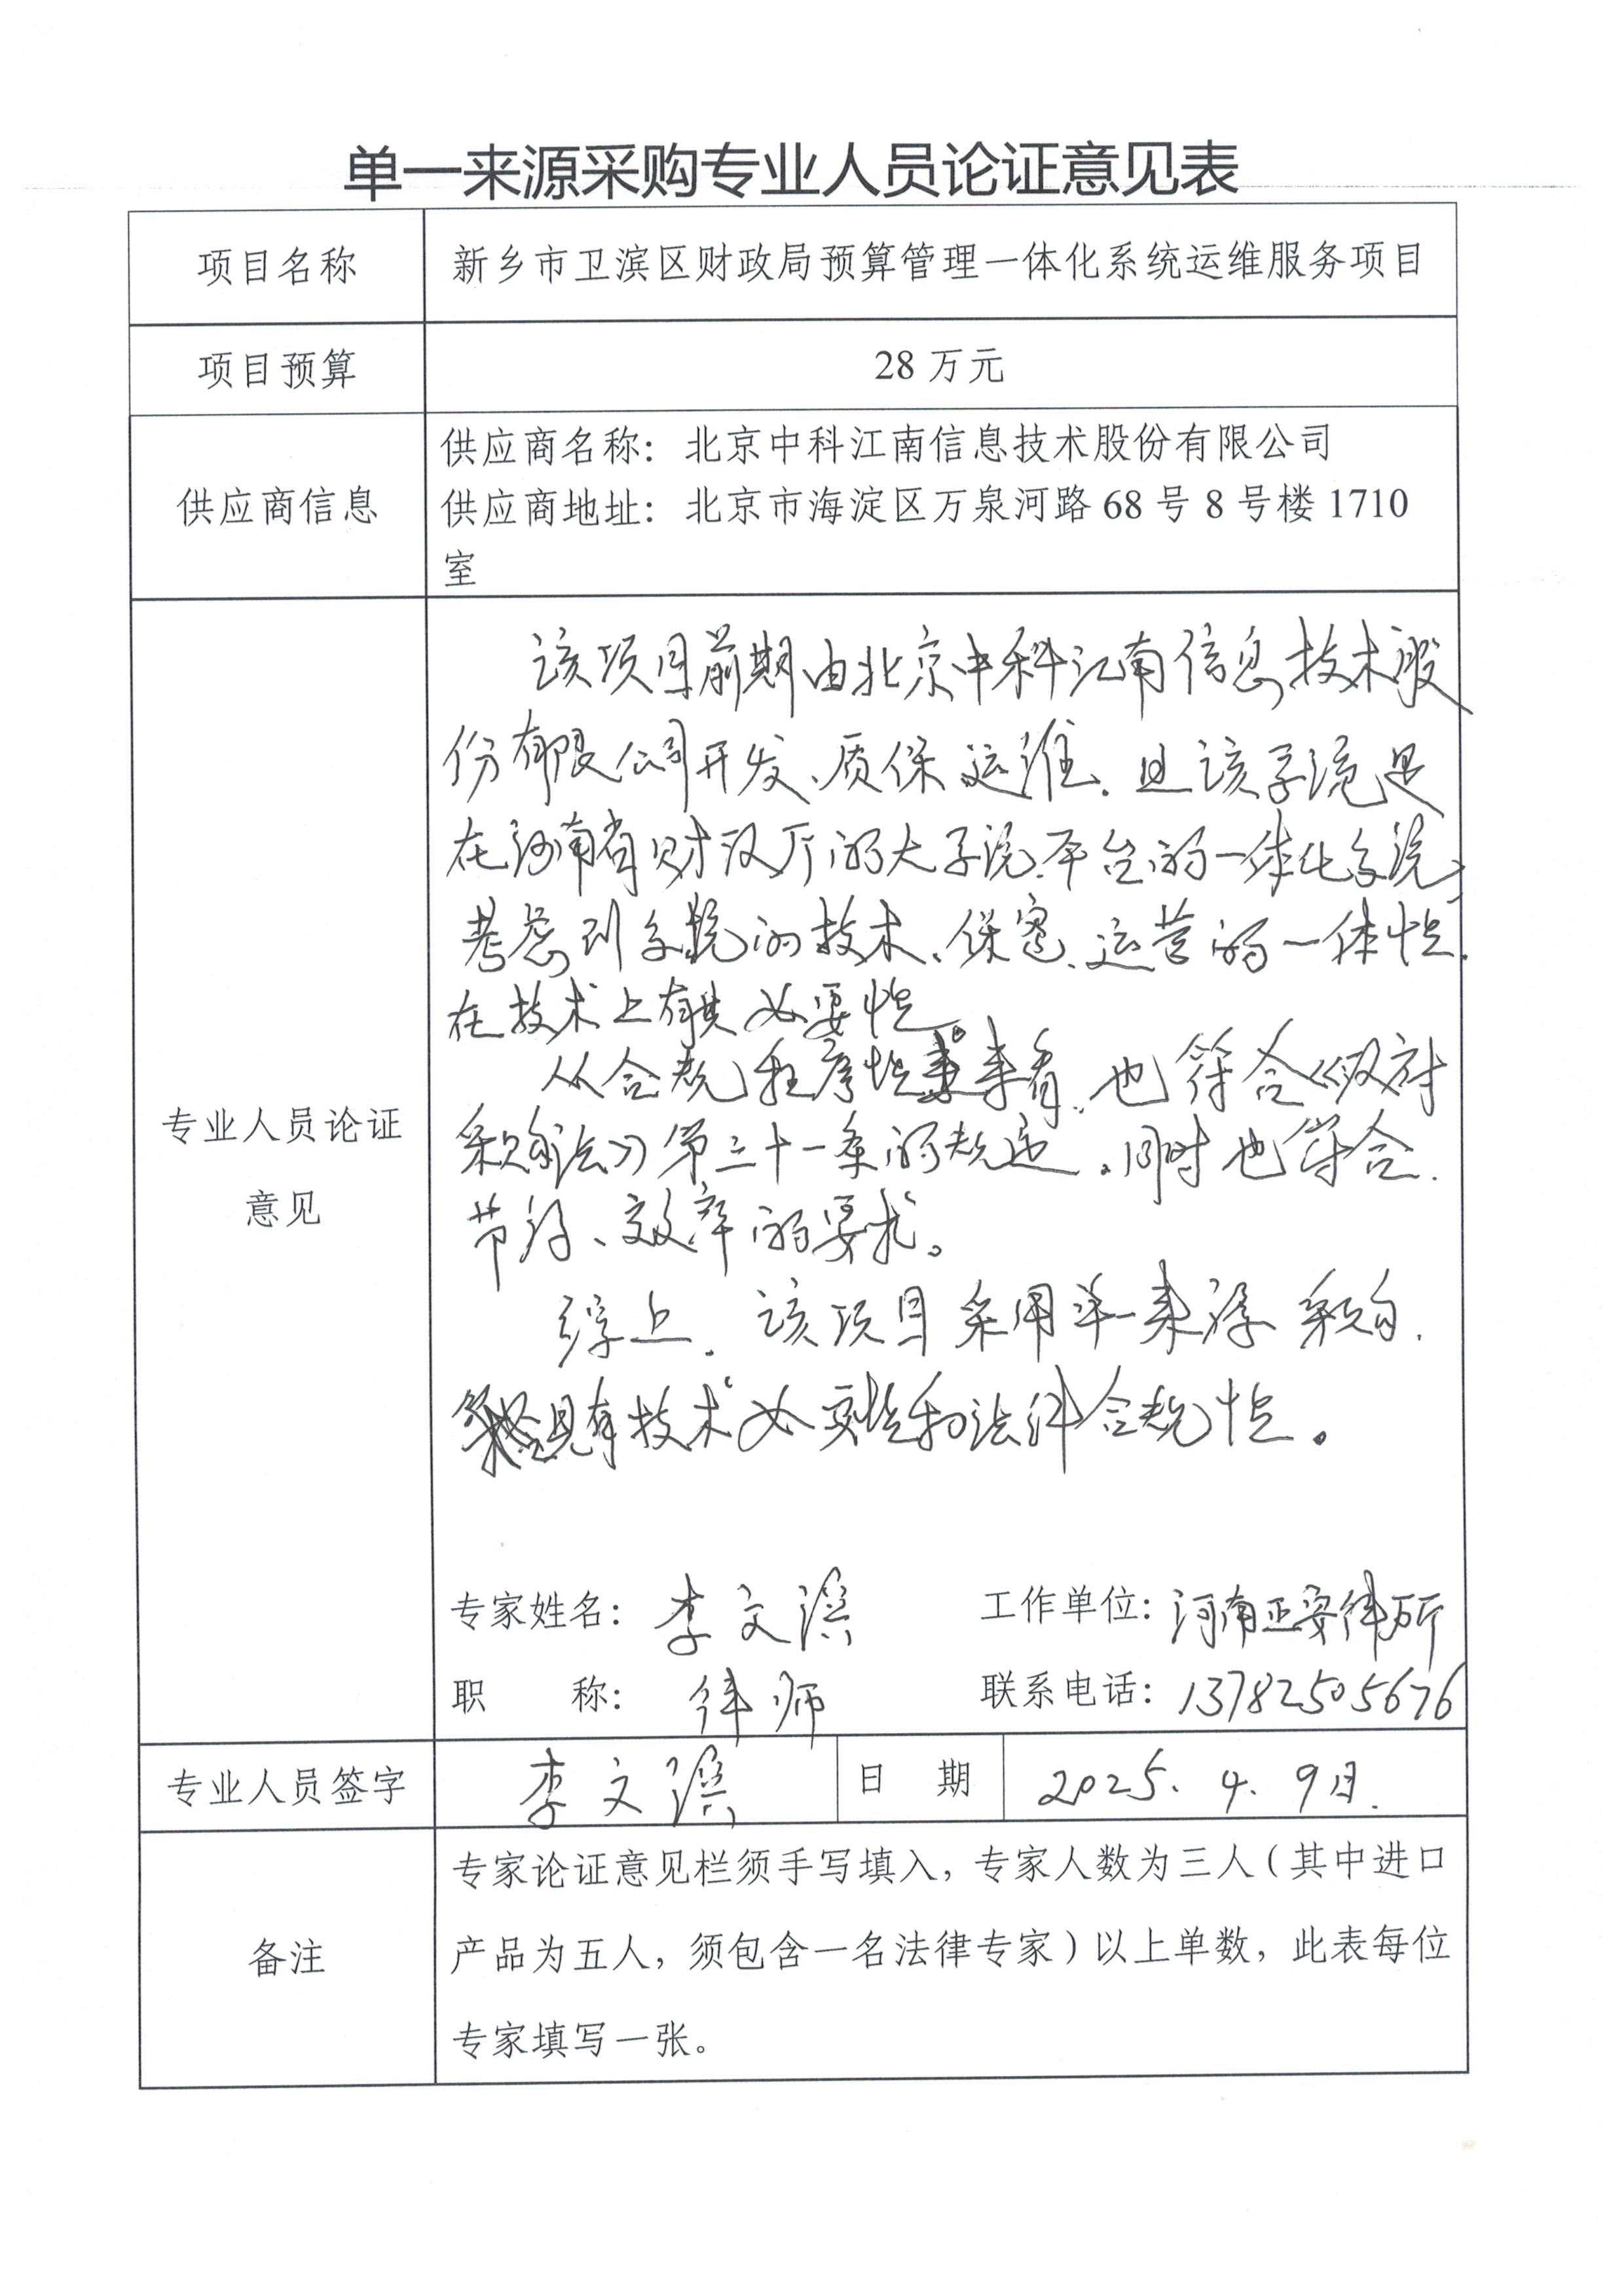 单一来源采购专业人员论证意见表
项目名称
新乡市卫滨区财政局预算管理一体化系统运维服务项目
项目预算
28 万元
供应商信息
供应商名称：北京中科江南信息技术股份有限公司
供应商地址：北京市海淀区万泉河路 68 号 8 号楼 1710
室
专业人员论证
意见
该项目前期由北京中科江南信息技术股
份有限公司开发、质保运维，且该系统是
在河南省财政厅的大系统平台的一体化系统，
考虑到系统的技术、保密、运营的一体性，
在技术上有其必要性。
从合规程序性来看，也符合《政府
采购法》第三十一条的规定，同时也符合
节约、效率的要求。
综上，该项目采用单一来源采购，
具有技术必要性和法律合规性。
专家姓名：李文滨
工作单位：河南正安律所
职 称：律师
联系电话：13782505676
专业人员签字
李文滨
日 期
2025. 4. 9日.
备注
专家论证意见栏须手写填入，专家人数为三人（其中进口
产品为五人，须包含一名法律专家）以上单数，此表每位
专家填写一张。